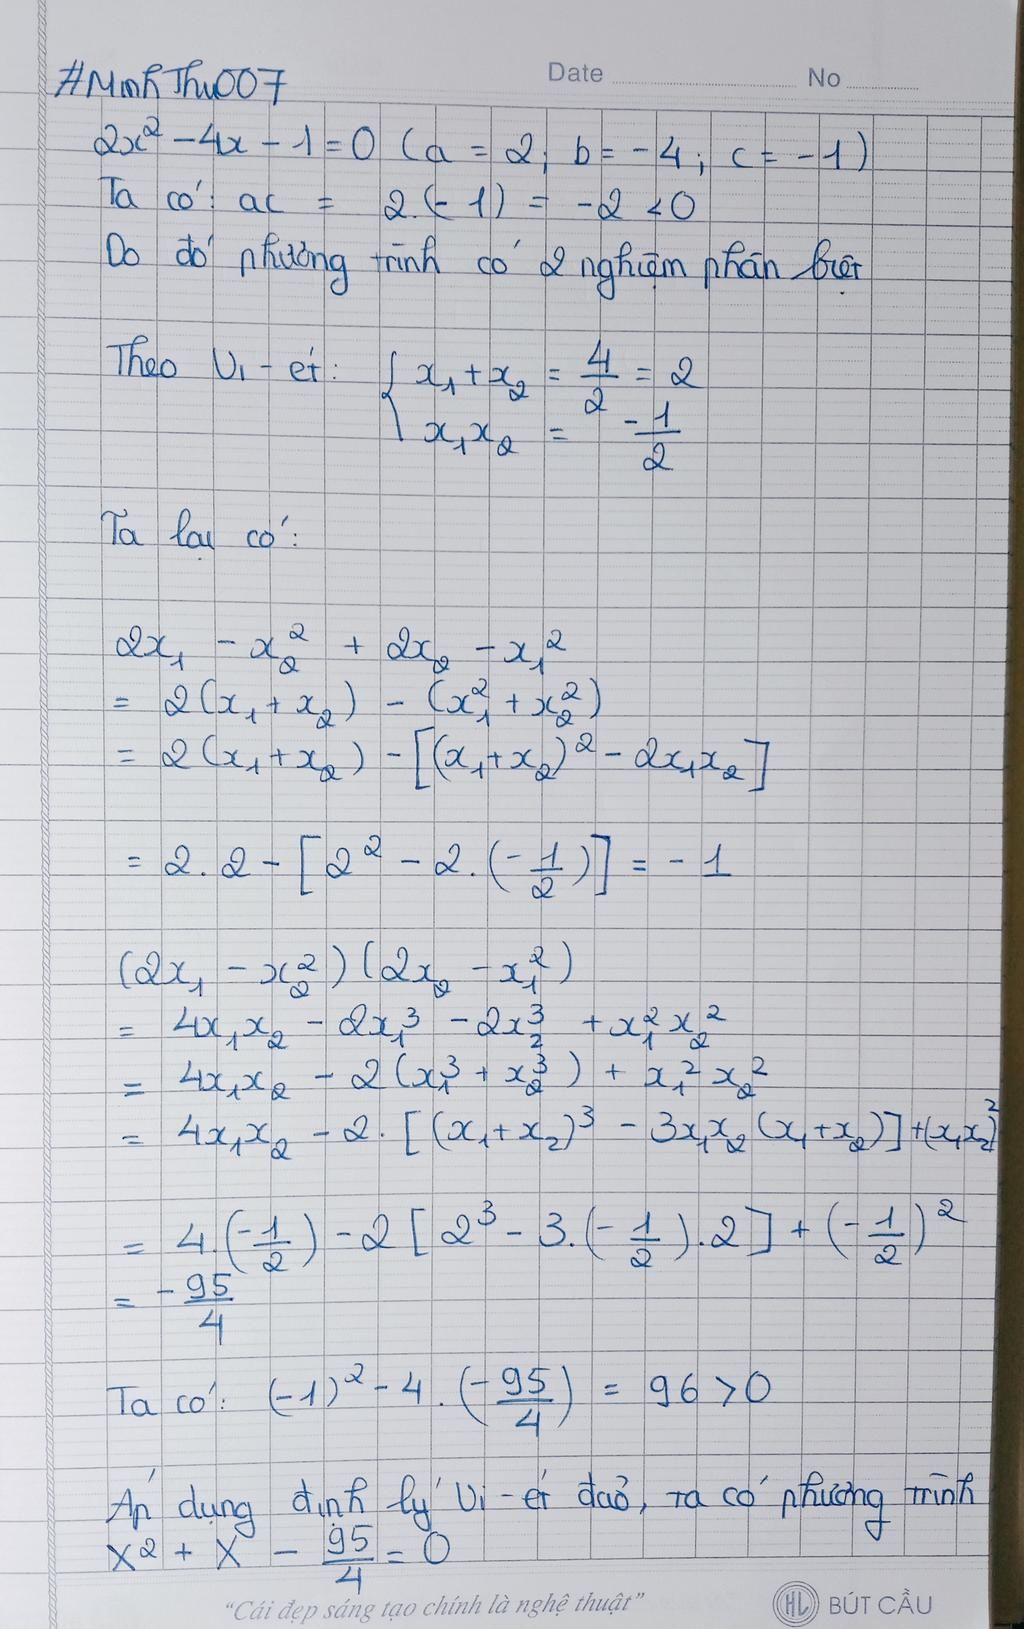 Date No
#MinhThu007
2x² - 4x - 1 = 0 (a = 2; b = -4; c = -1)
Ta có: ac = 2.(-1) = -2 < 0
Do đó phương trình có 2 nghiệm phân biệt
Theo Vi-ét: { x₁ + x₂ = 4/2 = 2
x₁x₂ = -1/2
Ta lại có:
2x₁ - x₂² + 2x₂ - x₁²
= 2(x₁ + x₂) - (x₁² + x₂²)
= 2(x₁ + x₂) - [(x₁ + x₂)² - 2x₁x₂]
= 2.2 - [2² - 2.(-1/2)] = -1
(2x₁ - x₂²)(2x₂ - x₁²)
= 4x₁x₂ - 2x₁³ - 2x₂³ + x₁²x₂²
= 4x₁x₂ - 2(x₁³ + x₂³) + x₁²x₂²
= 4x₁x₂ - 2.[(x₁ + x₂)³ - 3x₁x₂(x₁ + x₂)] + (x₁x₂)²
= 4.(-1/2) - 2[2³ - 3.(-1/2).2] + (-1/2)²
= -95/4
Ta có: (-1)² - 4.(-95/4) = 96 > 0
Áp dụng định lý Vi-ét đảo, ta có phương trình
X² + X - 95/4 = 0
"Cái đẹp sáng tạo chính là nghệ thuật" HL BÚT CẦU